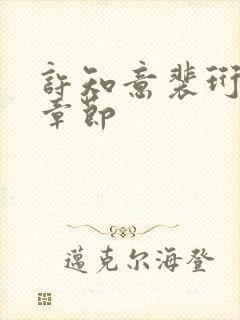 許知意裴珩
章節
邁克尔海登